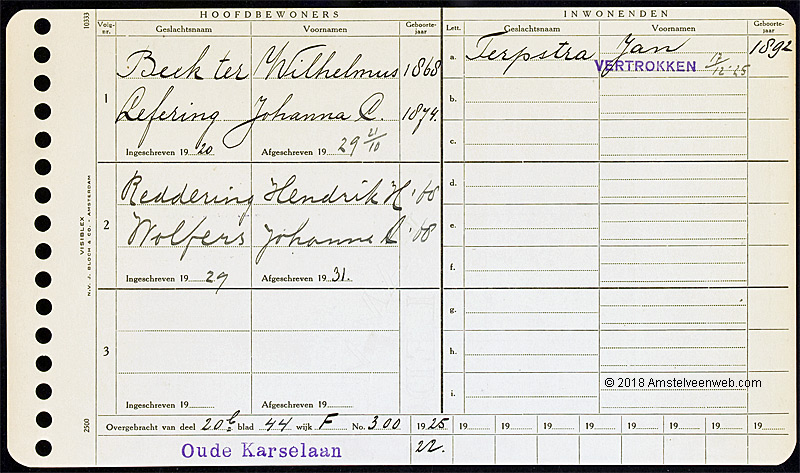 HOOFDBEWONERS
Volg-nr. Geslachtsnaam Voornamen Geboorte-jaar
1
Beek ter Wilhelmus 1868
Lefering Johanna C. 1874.
Ingeschreven 19 20 Afgeschreven 19 29 21/10
2
Reddering Hendrik H '68
Wolfers Johanna '68
Ingeschreven 19 29 Afgeschreven 19 31.
3
Ingeschreven 19 Afgeschreven 19
INWONENDEN
Lett. Geslachtsnaam Voornamen Geboorte-jaar
a. Terpstra Jan 1892
VERTROKKEN 17/12-25
b.
c.
d.
e.
f.
g.
h.
i.
© 2018 Amstelveenweb.com
Overgebracht van deel 20 blad 44 wijk F No. 300 19 25 19 19 19 19 19 19 19 19
Oude Karselaan 22.
10333
VISIBLEX
N.V. J. BLOCH & CO. - AMSTERDAM
2500